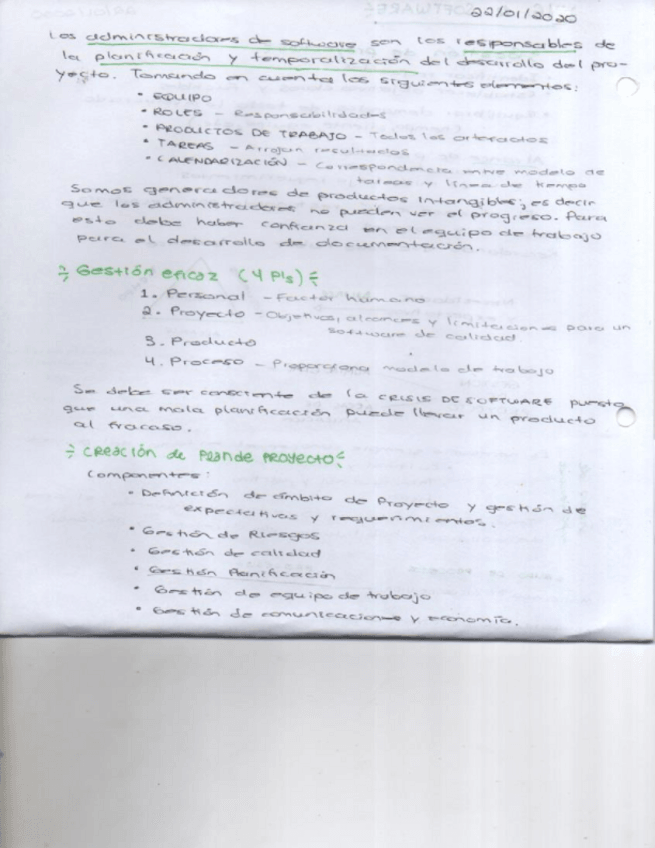 22/01/2020
Los administradores de software son los responsables de
la planificación y temporalización del desarrollo del pro-
yecto. Tomando en cuenta los siguientes elementos:
• EQUIPO
• ROLES - Responsabilidades
• PRODUCTOS DE TRABAJO - Todos los artefactos
• TAREAS - Arrojan resultados
• CALENDARIZACIÓN - Correspondencia entre modelo de
tareas y línea de tiempo
Somos generadores de productos intangibles, es decir
que los administradores no pueden ver el progreso. Para
esto debe haber confianza en el equipo de trabajo
para el desarrollo de documentación.
÷ Gestión eficaz (4 P's) ÷
1. Personal - Factor humano
2. Proyecto - Objetivos, alcances y limitaciones para un
software de calidad.
3. Producto
4. Proceso - Proporciona modelo de trabajo
Se debe ser consciente de la CRISIS DE SOFTWARE puesto
que una mala planificación puede llevar un producto
al fracaso.
÷ Creación de Plan de PROYECTO ÷
Componentes:
• Definición de ámbito de Proyecto y gestión de
expectativas y requerimientos.
• Gestión de Riesgos
• Gestión de calidad
• Gestión Planificación
• Gestión de equipo de trabajo
• Gestión de comunicaciones y economía.